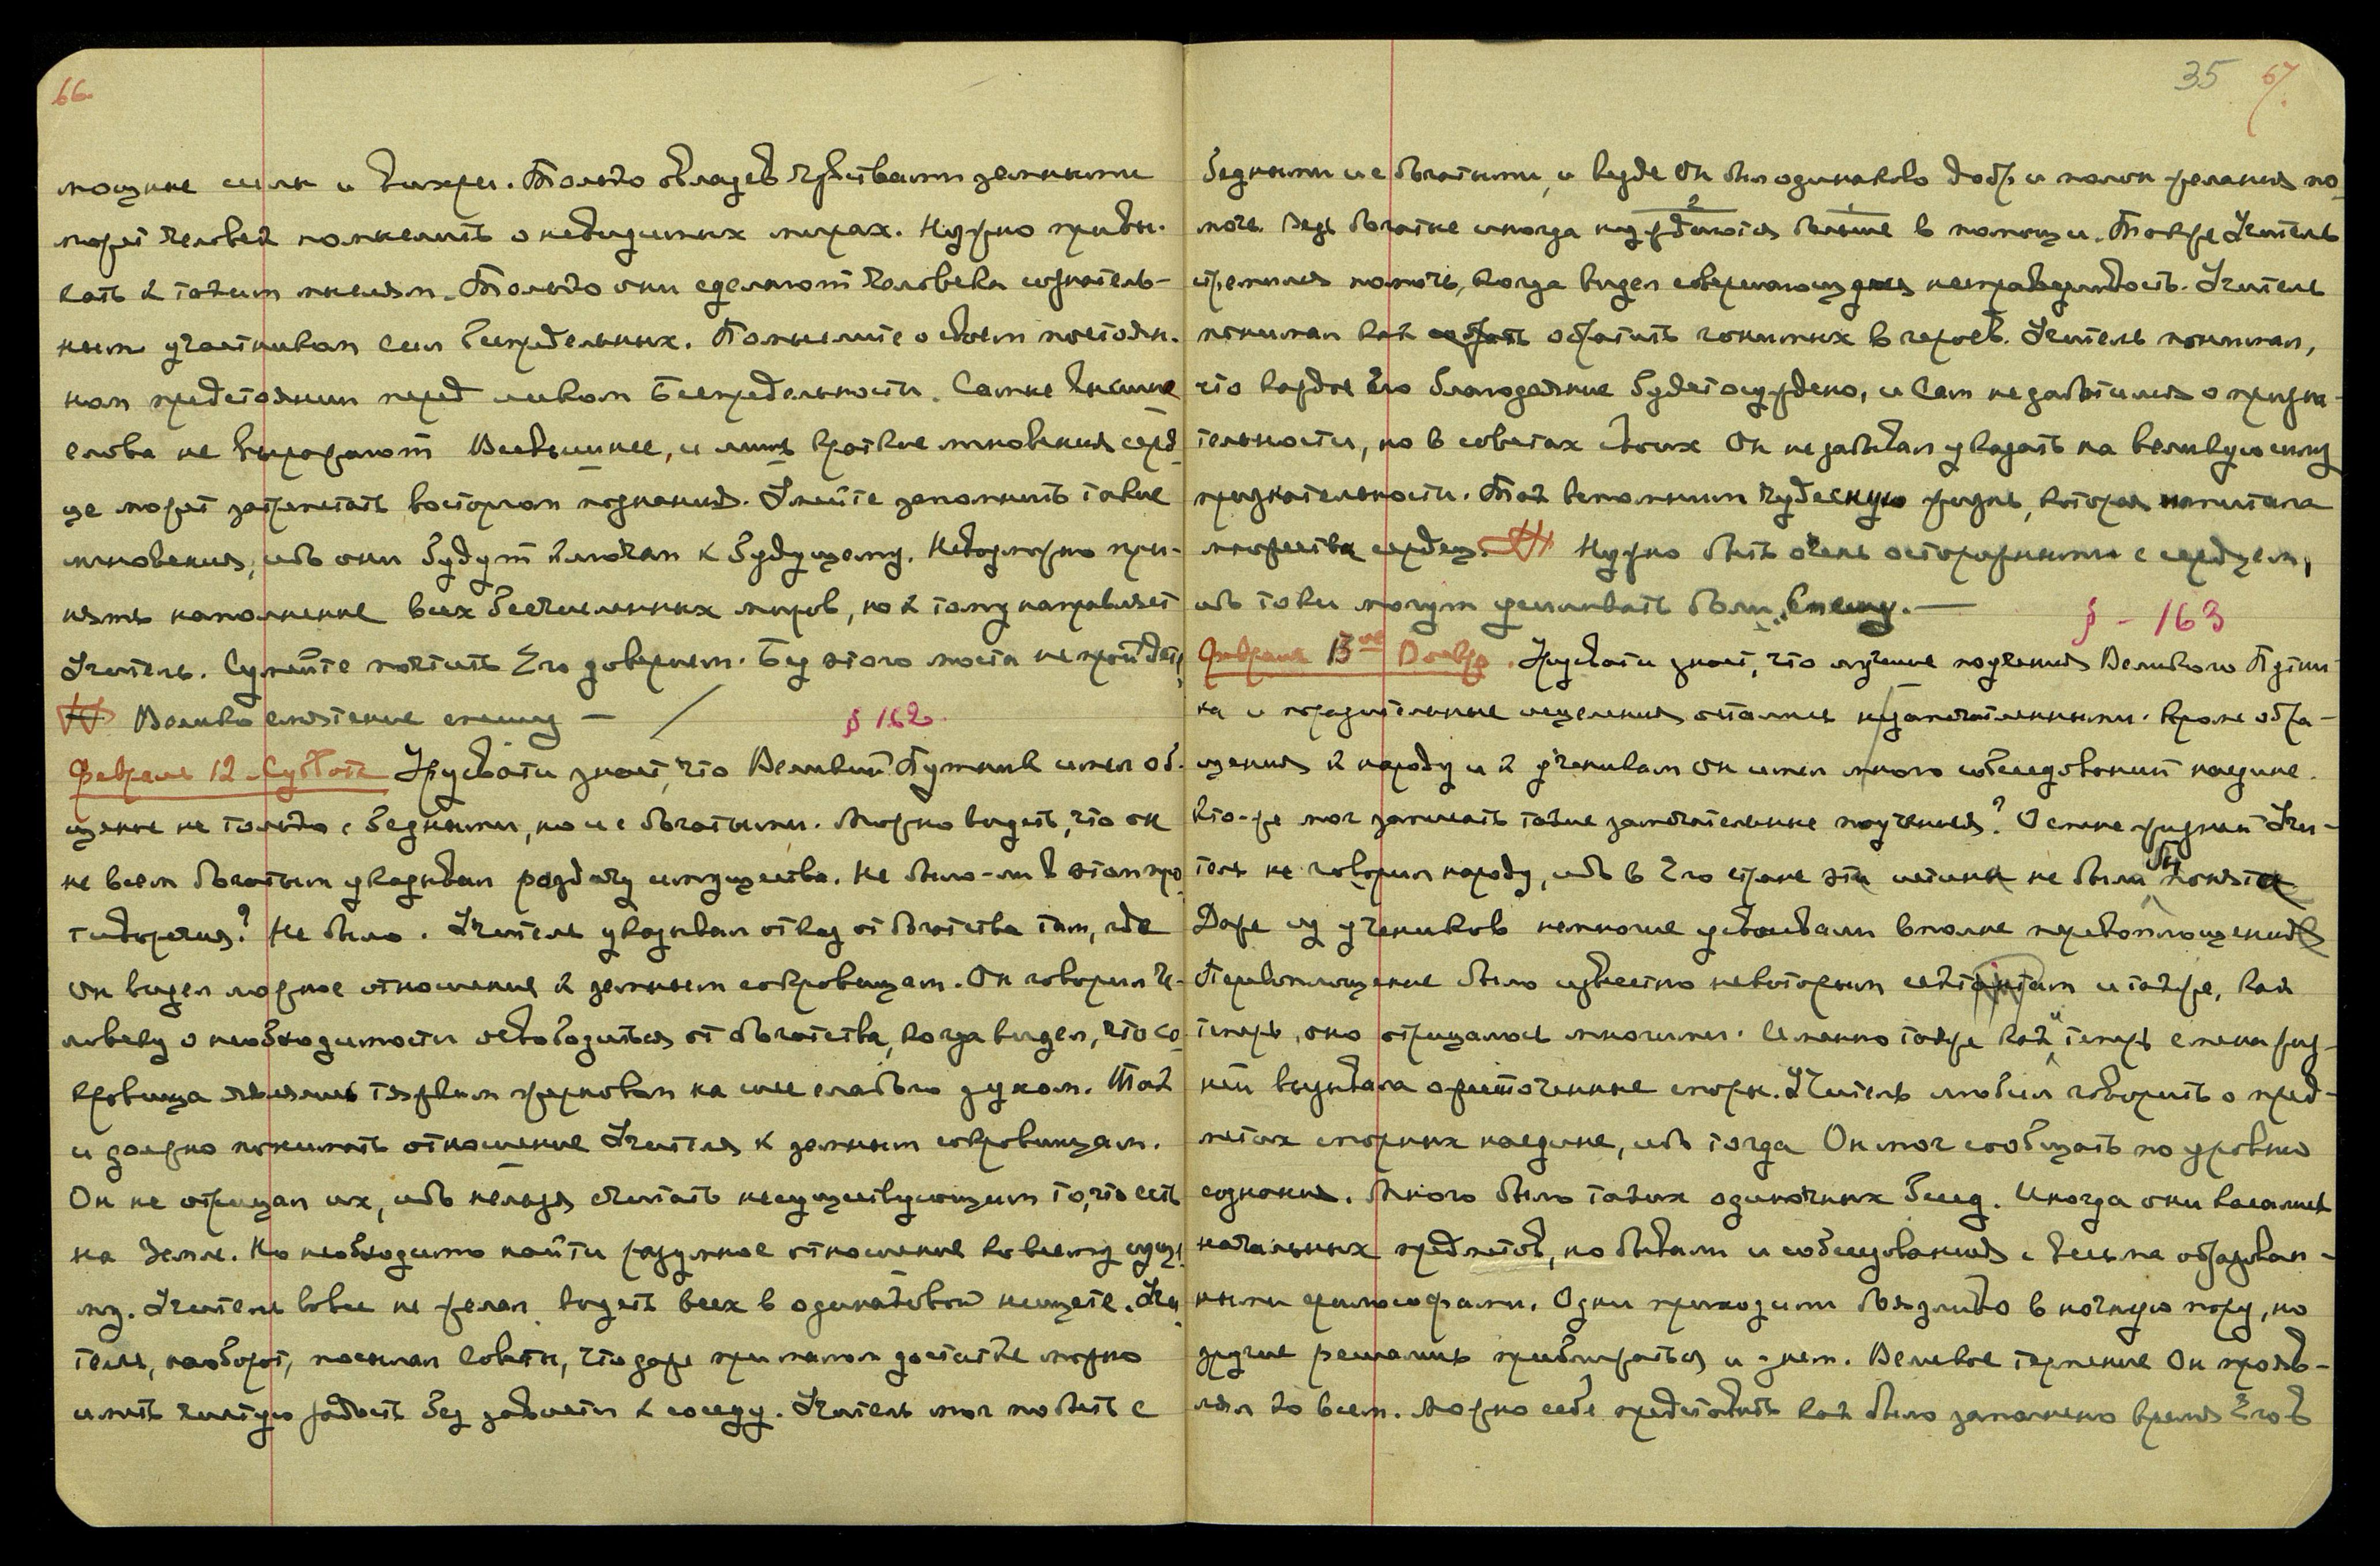 66.
мощные силы и вихри. Только овладев чувствами земными
может человек помыслить о невидимых мирах. Нужно привы-
кать к таким мыслям. Только они сделают человека сознатель-
ным участником сил Беспредельных. Помыслите о своем постоян-
ном предстоянии перед ликом Беспредельности. Самые высшие
слова не выражают Всевышнее, и лишь краткие мгновения серд-
це может затрепетать восторгом познания. Умейте запомнить такие
мгновения, ибо они будут ключом к будущему. Невозможно при-
нять наполнение всех бесчисленных миров, но к тому направляет
Учитель. Сумейте почтить Его доверием. Без этого моста не пройдете
Велико смятение спешу —
§ 162.
Февраль 12. Суббота Урусвати знает, что Великий Путник имел об-
щение не только с бедными, но и с богатыми. Можно видеть, что он
не всем богатым указывал раздачу имущества. Не было-ли в этом про-
тиворечия? Не было. Учитель указывал отказ от богатства там, где
Он видел ложное отношение к земным сокровищам. Он говорил че-
ловеку о необходимости освободиться от богатства, когда видел, что со-
кровища являлись тяжким жерновом на шее слабого духом. Так
и должно понимать отношение Учителя к земным сокровищам.
Он не отрицал их, ибо нельзя считать несуществующим то, что есть
на Земле. Но необходимо найти разумное отношение ко всему суще-
му. Учитель вовсе не желал видеть всех в одинаковой нищете. Учи-
тель, наоборот, посылал советы, что даже при малом достатке можно
иметь чистую радость без зависти к соседу. Учитель мог побыть с
35 67.
бедными и с богатыми, и везде Он был одинаково добр и полон желания по-
мочь. Ведь богатые иногда нуждаются больше в помощи. Также Учитель
2 1
стремился помочь, когда видел совершающуюся несправедливость. Учитель
понимал как обратить гонимых в героев. Учитель понимал,
что каждое Его благодеяние будет осуждено, и Сам не заботился о призна-
тельности, но в советах своих Он не забывал указать на великую силу
признательности. Так вспомним чудесную жизнь, которая напитала
множества сердец. Нужно быть очень осторожными с сердцем,
ибо токи могут усиливать боли. Спешу. —
§ - 163
Февраль 13ое Воскр. Урусвати знает, что лучшие поучения Великого Путни-
ка и поразительные исцеления остались незапечатленными. Кроме обра-
щения к народу и к ученикам Он имел много собеседований наедине.
Кто-же мог записать такие замечательные поучения? О смене жизней Учи-
тель не говорил народу, ибо в Его стране эти истины не были бы поняты
Даже из учеников немногие усваивали вполне перевоплощения
Перевоплощение было известно некоторым сектам и также, как
теперь, оно отрицалось многими. Именно также как и теперь смена жиз-
ней вызывала ожесточенные споры. Учитель любил говорить о пред-
метах спорных наедине, ибо тогда Он мог сообщать по уровню
сознания. Много было таких одиночных бесед. Иногда они касались
начальных предметов, но бывали и собеседования с весьма образован-
ными философами. Одни приходили боязливо в ночную пору, но
другие решались приближаться и днем. Великое терпение Он прояв-
лял ко всем. Можно себе представить как было заполнено время Его в